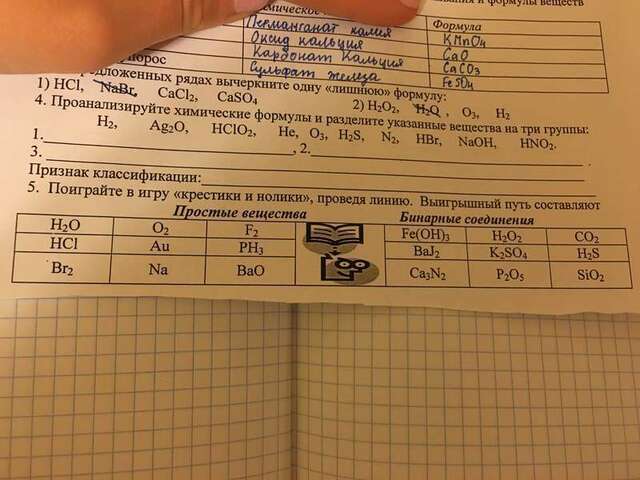 и формулы веществ
Формула
Перманганат калия KMnO4
Оксид кальция CaO
Карбонат кальция CaCO3
Сульфат железа FeSO4
рядах вычеркните одну «лишнюю» формулу:
1) HCl, NaBr, CaCl2, CaSO4 2) H2O2, H2O, O3, H2
4. Проанализируйте химические формулы и разделите указанные вещества на три группы:
H2, Ag2O, HClO2, He, O3, H2S, N2, HBr, NaOH, HNO2.
1. , 2.
3. .
Признак классификации:
5. Поиграйте в игру «крестики и нолики», проведя линию. Выигрышный путь составляют
Простые вещества Бинарные соединения
H2O O2 F2 Fe(OH)3 H2O2 CO2
HCl Au PH3 BaJ2 K2SO4 H2S
Br2 Na BaO Ca3N2 P2O5 SiO2